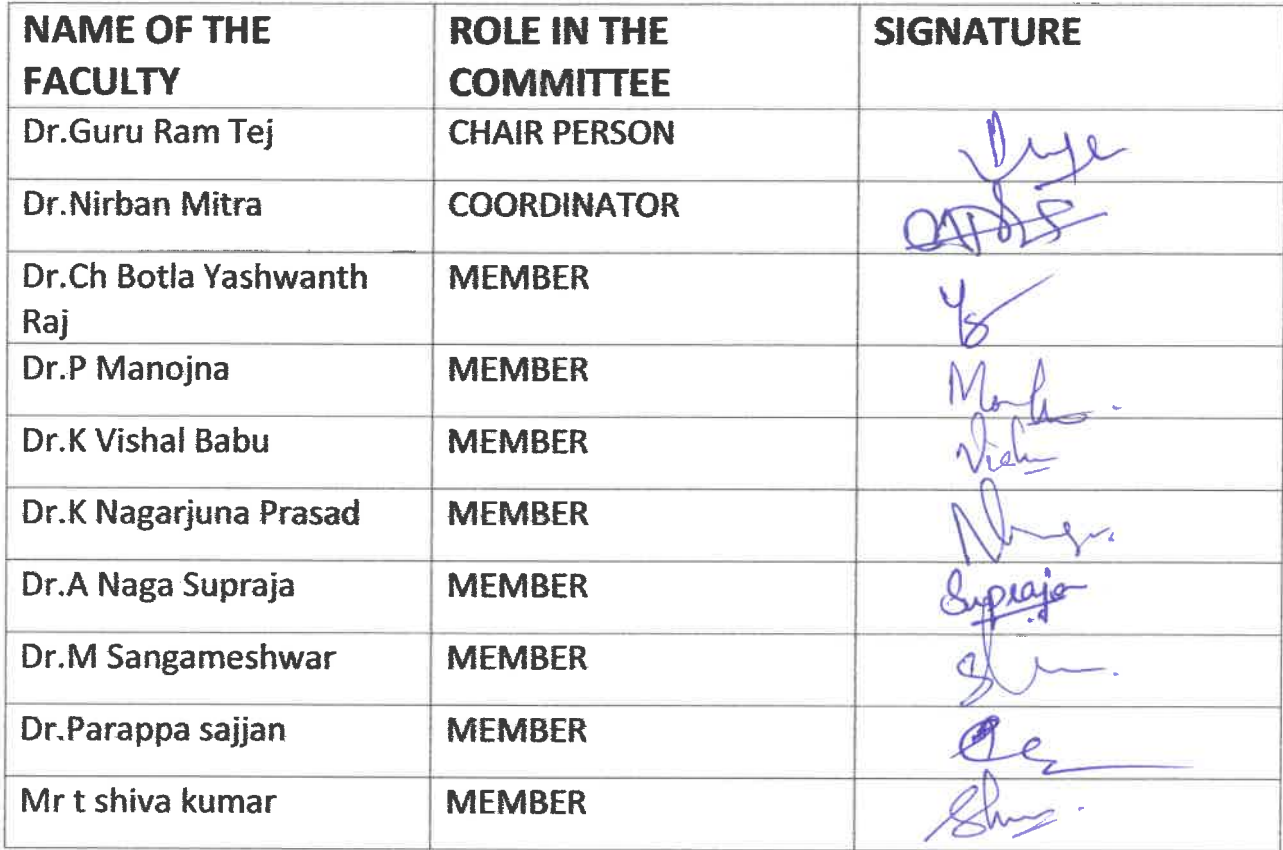 NAME OF THE
FACULTY
ROLE IN THE
COMMITTEE
SIGNATURE
Dr.Guru Ram Tej
CHAIR PERSON
Dr.Nirban Mitra
COORDINATOR
Dr.Ch Botla Yashwanth
Raj
MEMBER
Dr.P Manojna
MEMBER
Dr.K Vishal Babu
MEMBER
Dr.K Nagarjuna Prasad
MEMBER
Dr.A Naga Supraja
MEMBER
Supraja
Dr.M Sangameshwar
MEMBER
Dr.Parappa sajjan
MEMBER
Mr t shiva kumar
MEMBER